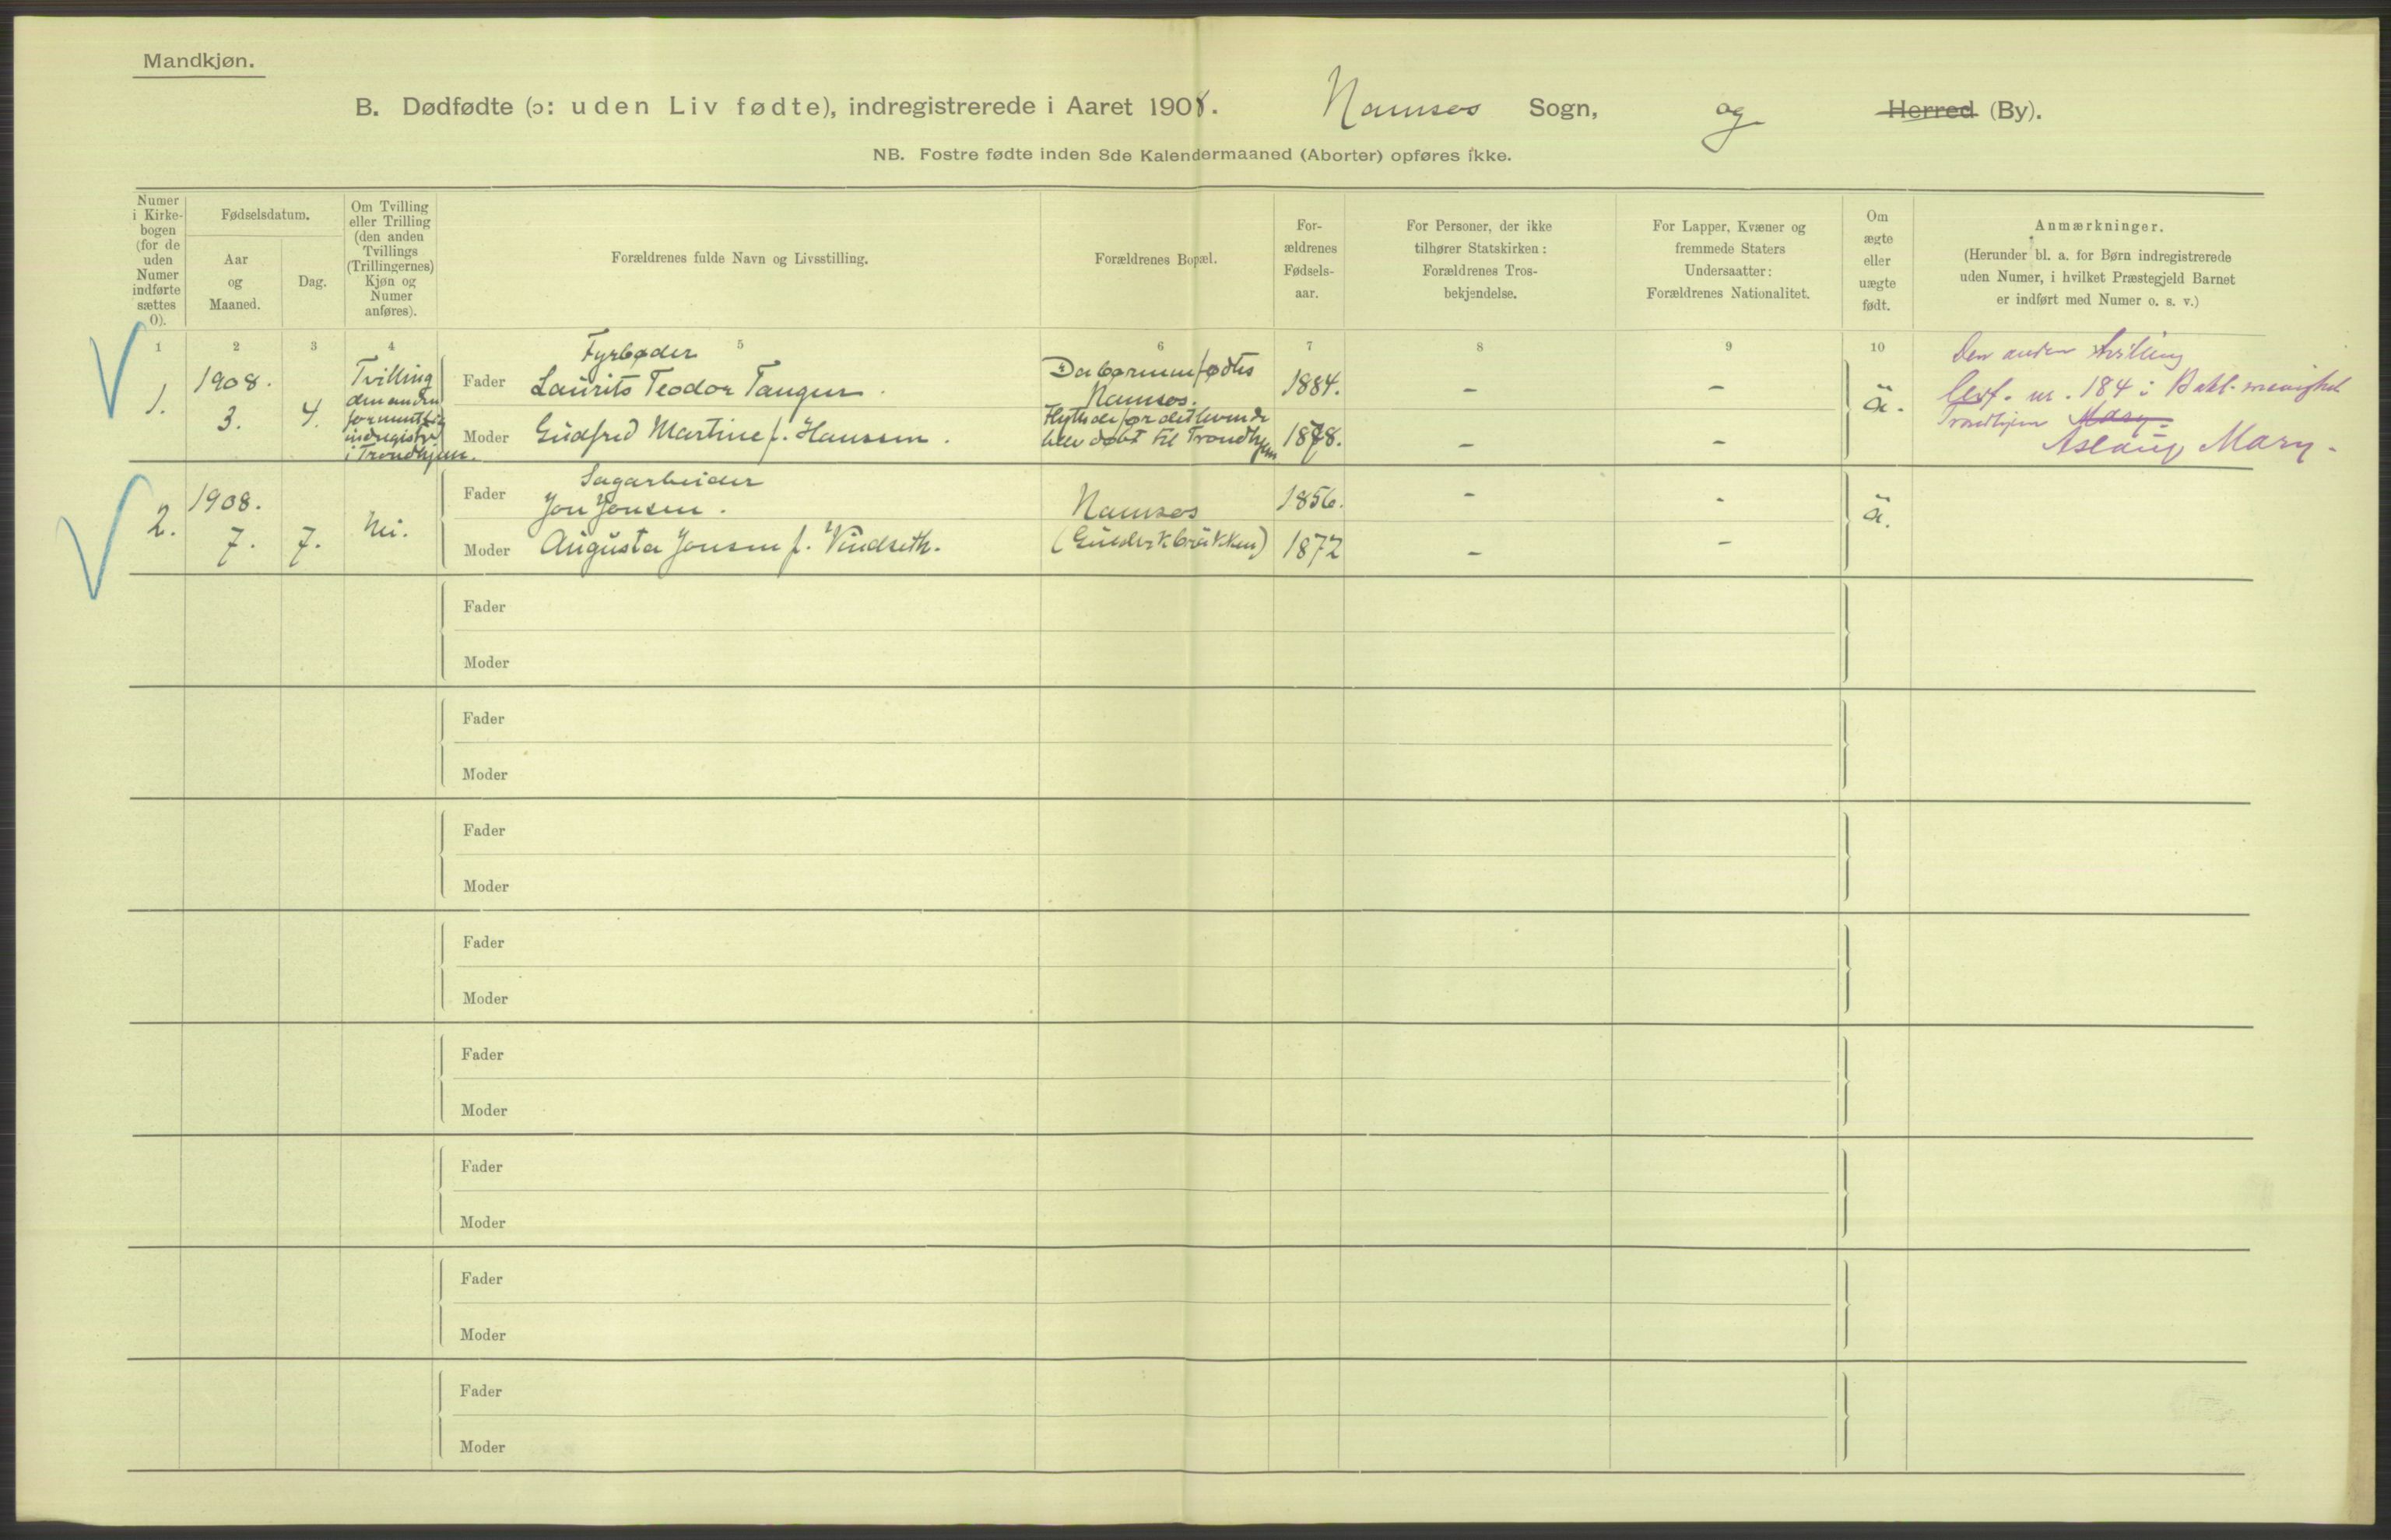 Mandkjøn.
B. Dødfødte (ɔ: uden Liv fødte), indregistrerede i Aaret 1908. Namsos Sogn, og Herred (By).
NB. Fostre fødte inden 8de Kalendermaaned (Aborter) opføres ikke.
Numer
i Kirke-
bogen
(for de
uden
Numer
indførte
sættes
0).
Fødselsdatum.
Aar
og
Maaned.
Dag.
Om Tvilling
eller Trilling
(den anden
Tvillings
(Trillingernes)
Kjøn og
Numer
anføres).
Forældrenes fulde Navn og Livsstilling.
Forældrenes Bopæl.
For-
ældrenes
Fødsels-
aar.
For Personer, der ikke
tilhører Statskirken:
Forældrenes Tros-
bekjendelse.
For Lapper, Kvæner og
fremmede Staters
Undersaatter:
Forældrenes Nationalitet.
Om
ægte
eller
uægte
født.
Anmærkninger.
(Herunder bl. a. for Børn indregistrerede
uden Numer, i hvilket Præstegjeld Barnet
er indført med Numer o. s. v.)
1 2 3 4 5 6 7 8 9 10
1.
1908.
3.
4.
Tvilling
den anden
formentlig
indregistr.
i Trondhjem.
Fyrbøder
Fader Laurits Teodor Tangen.
Moder Gudfred Martine f. Hanssen.
Da barnene fødtes
Namsos.
Flyttede før det levende
blev døbt til Trondhjem
1884.
1878.
–
–
–
–
æ.
Den anden tvilling
levf. nr. 184 i Bakl. menighet
Trondhjem Mary.
Aslaug Mary.
2.
1908.
7.
7.
Nei.
Sagarbeider
Fader Jon Jonsen.
Moder Augusta Jonsen f. Vindseth.
Namsos
1856.
1872
–
–
–
–
æ.
Fader
Moder
Fader
Moder
Fader
Moder
Fader
Moder
Fader
Moder
Fader
Moder
Fader
Moder
Fader
Moder